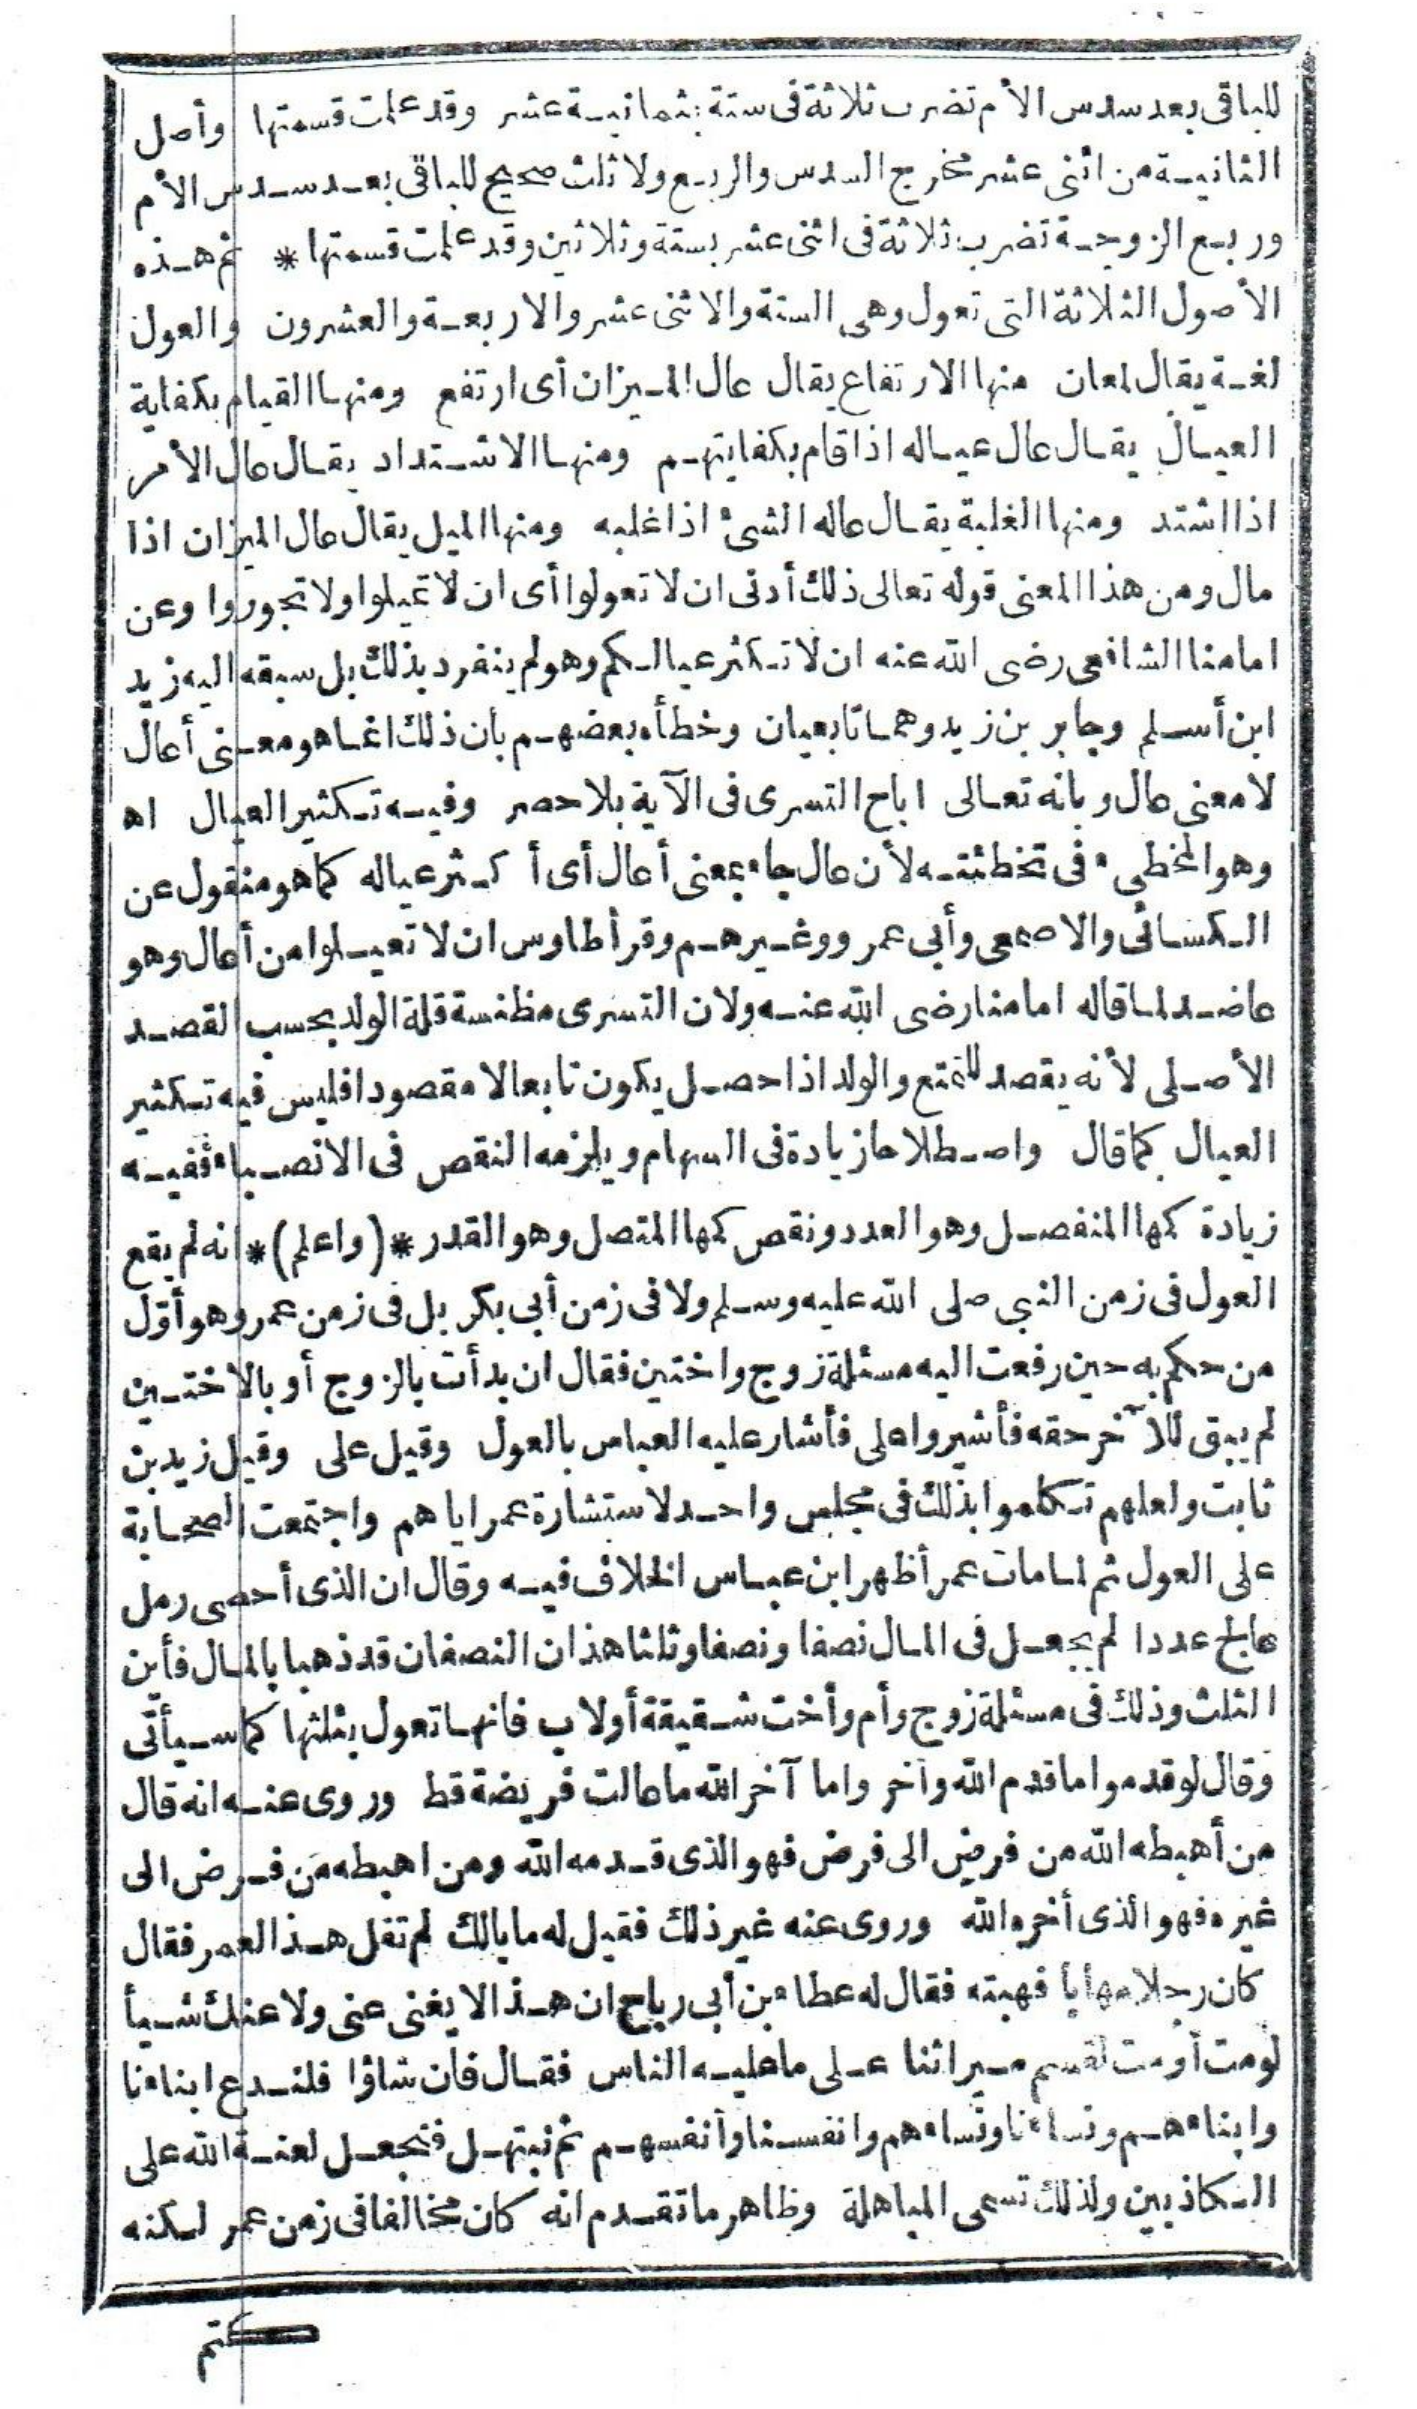 للباقى بعد سدس الأم تضرب ثلاثة فى ستة بثمانية عشر وقد علمت قسمتها وأصل
الثانية من اثنى عشر مخرج السدس والربع ولا ثلث صحيح للباقى بعد سدس الأم
وربع الزوجة تضرب ثلاثة فى اثنى عشر بستة وثلاثين وقد علمت قسمتها * ثم هذه
الأصول الثلاثة التى تعول وهى الستة والاثنى عشر والاربعة والعشرون والعول
لغة يقال لمعان منها الارتفاع يقال عال الميزان أى ارتفع ومنها القيام بكفاية
العيال يقال عال عياله اذا قام بكفايتهم ومنها الاشتداد يقال عال الأمر
اذا اشتد ومنها الغلبة يقال عاله الشىء اذا غلبه ومنها الميل يقال عال الميزان اذا
مال ومن هذا المعنى قوله تعالى ذلك أدنى ان لا تعولوا أى ان لا تميلوا ولا تجوروا وعن
امامنا الشافعى رضى الله عنه ان لا تكثر عيالكم وهو لم ينفرد بذلك بل سبقه اليه زيد
ابن أسلم وجابر بن زيد وهما تابعيان وخطأه بعضهم بأن ذلك انما هو معنى أعال
لا معنى عال وبانه تعالى اباح التسرى فى الآية بلا حصر وفيه تكثير العيال اه
وهو المخطىء فى تخطئته لأن عال جاء بمعنى أعال أى أكثر عياله كما هو منقول عن
الكسائى والاصمعى وأبى عمرو وغيرهم وقرأ طاوس ان لا تعيلوا من أعال وهو
عاضد لما قاله امامنا رضى الله عنه ولان التسرى مظنسة قلة الولد بحسب القصد
الأصلى لأنه يقصد للتمتع والولد اذا حصل يكون تابعا لا مقصودا فليس فيه تكثير
العيال كما قال واصطلاحا زيادة فى السهام ويلزمه النقص فى الانصباء ففيه
زيادة كمها المنفصل وهو العدد ونقص كمها المتصل وهو القدر *(واعلم)* انه لم يقع
العول فى زمن النبى صلى الله عليه وسلم ولا فى زمن أبى بكر بل فى زمن عمر وهو أوّل
من حكم به حين رفعت اليه مسئلة زوج واختين فقال ان بدأت بالزوج أو بالاختين
لم يبق للآخر حقه فأشيروا على فأشار عليه العباس بالعول وقيل على وقيل زيد بن
ثابت ولعلهم تكلموا بذلك فى مجلس واحد لاستشارة عمر اياهم واجتمعت الصحابة
على العول ثم لما مات عمر أظهر ابن عباس الخلاف فيه وقال ان الذى أحصى رمل
عالج عددا لم يجعل فى المال نصفا ونصفا وثلثا هذان النصفان قد ذهبا بالمال فأين
الثلث وذلك فى مسئلة زوج وأم وأخت شقيقة أو لاب فانها تعول بثلثها كما سيأتى
وقال لو قدموا ما قدم الله وأخر واما آخر الله ما عالت فريضة قط وروى عنه انه قال
من أهبطه الله من فرض الى فرض فهو الذى قدمه الله ومن اهبطه من فرض الى
غيره فهو الذى أخره الله وروى عنه غير ذلك فقيل له ما بالك لم تقل هذا لعمر فقال
كان رجلا مهابا فهبته فقال له عطاء بن أبى رباح ان هذا لا يغنى عنى ولا عنك شيأ
لو مت أو مت لقسم ميراثنا على ما عليه الناس فقال فان شاؤا فلندع ابناءنا
وابناءهم ونساءنا ونساءهم وانفسنا وأنفسهم ثم نبتهل فنجعل لعنة الله على
الكاذبين ولذلك تسمى المباهلة وظاهر ما تقدم انه كان مخالفا فى زمن عمر لكنه
كتم